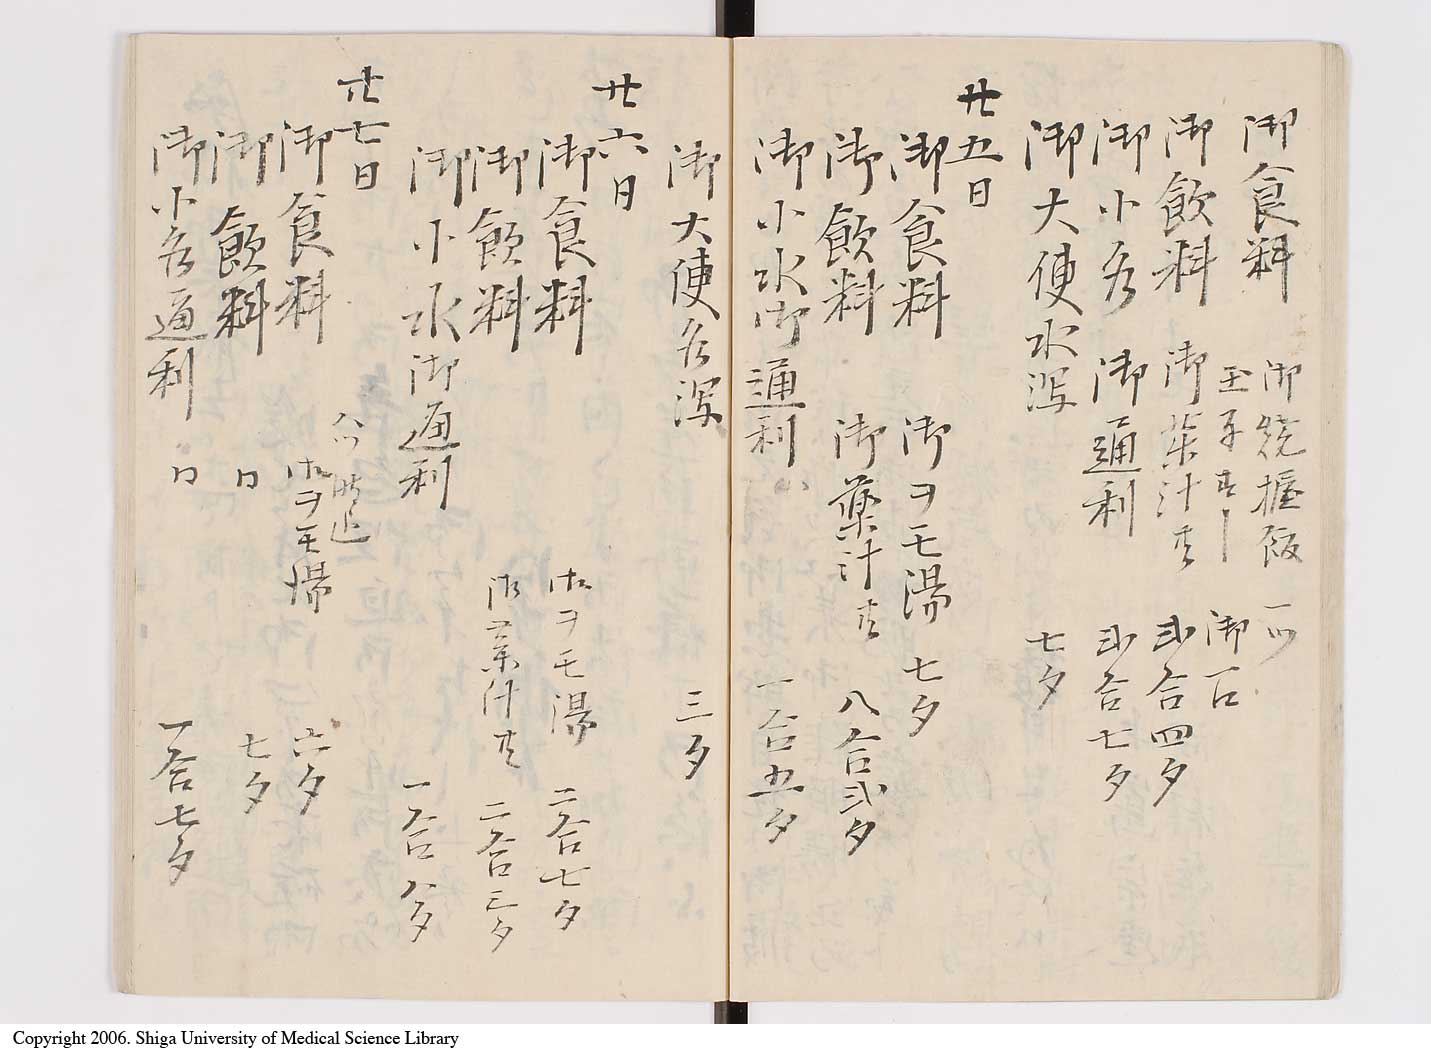 御食料 御焼握飯 一ツ
玉子 御一口
御飲料 御薬汁共 弐合四夕
御小水 御通利 弐合七夕
御大便水瀉 七夕
廿五日
御食料 御ヲモ湯 七夕
御飲料 御薬汁共 八合弐夕
御小水御通利 一合五夕
御大便水瀉 三夕
廿六日
御食料 御ヲモ湯 二合七夕
御飲料 御薬汁共 二合三夕
御小水御通利 一合八夕
廿七日 八ツ時迄
御食料 御ヲモ湯 六夕
御飲料 〃 七夕
御小水通利 〃 一合七夕
Copyright 2006. Shiga University of Medical Science Library